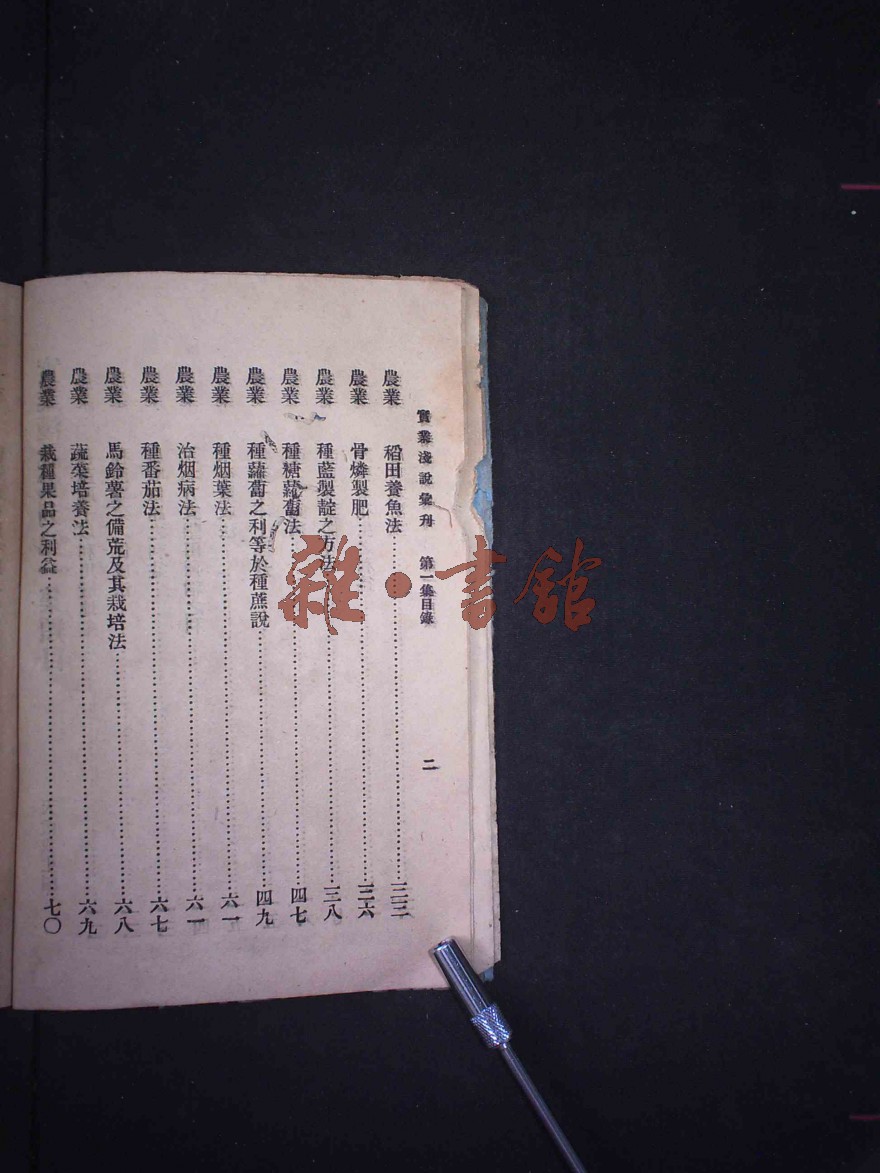 實業淺說彙刋　第一集目錄　二
農業　稻田養魚法…………三三
農業　骨燐製肥…………三六
農業　種藍製靛之方法…………三八
農業　種糖蘿蔔法…………四七
農業　種蘿蔔之利等於種蔗說…………四九
農業　種烟葉法…………六一
農業　治烟病法…………六一
農業　種番茄法…………六七
農業　馬鈴薯之備荒及其栽培法…………六八
農業　蔬菜培養法…………六九
農業　栽種果品之利益…………七〇
雜·書館